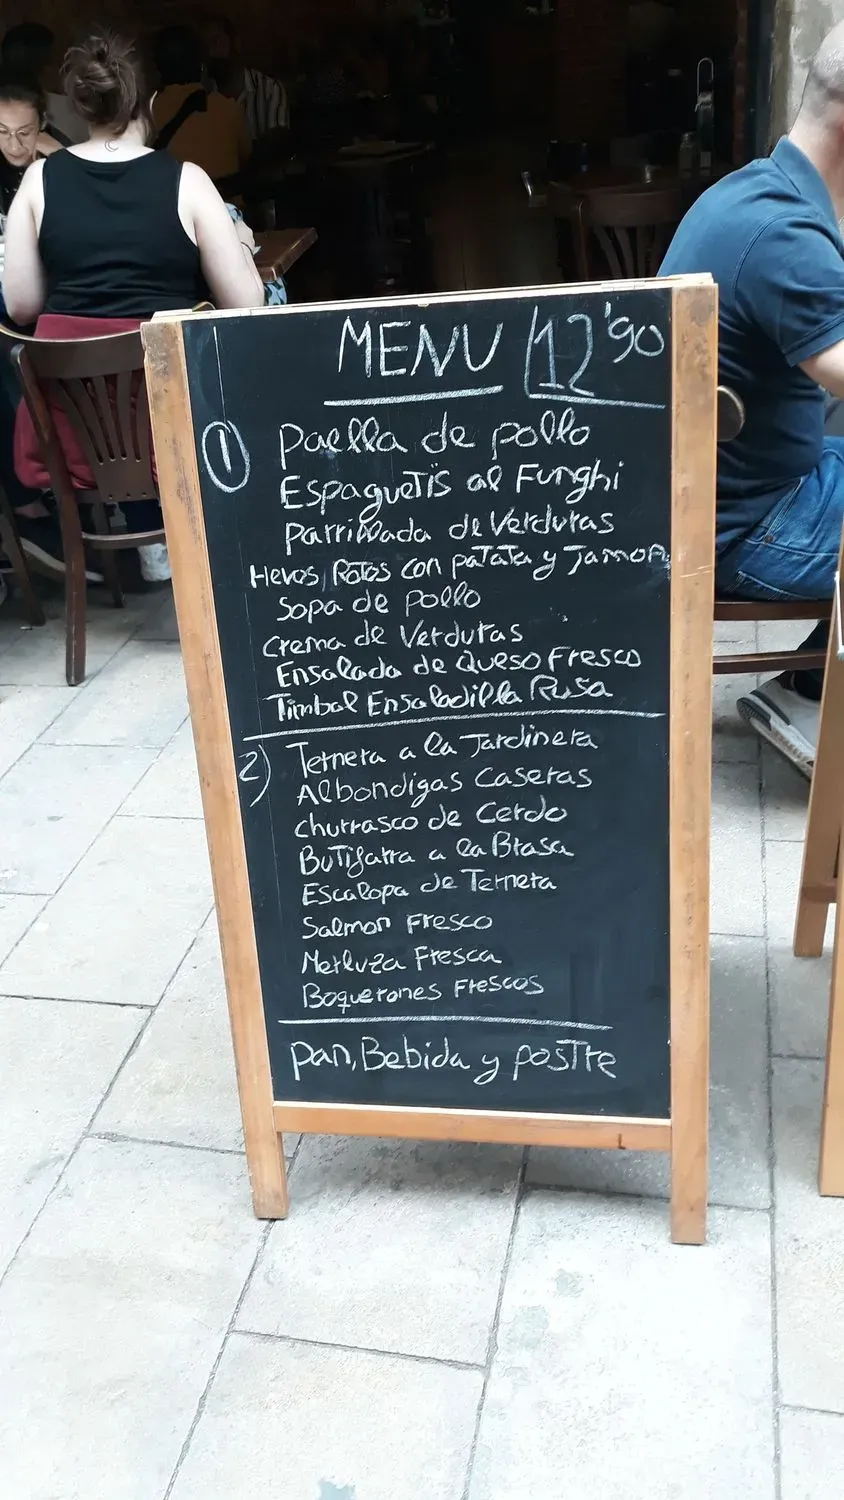 MENU 12'90
1 Paella de pollo
Espaguetis al Funghi
Parrillada de Verduras
Hevos Rotos con patata y Jamon
Sopa de pollo
Crema de Verduras
Ensalada de Queso Fresco
Timbal Ensaladilla Rusa
2) Ternera a la Jardinera
Albondigas Caseras
Churrasco de Cerdo
Butifarra a la Brasa
Escalopa de Ternera
Salmon Fresco
Merluza Fresca
Boquerones Frescos
Pan, Bebida y postre